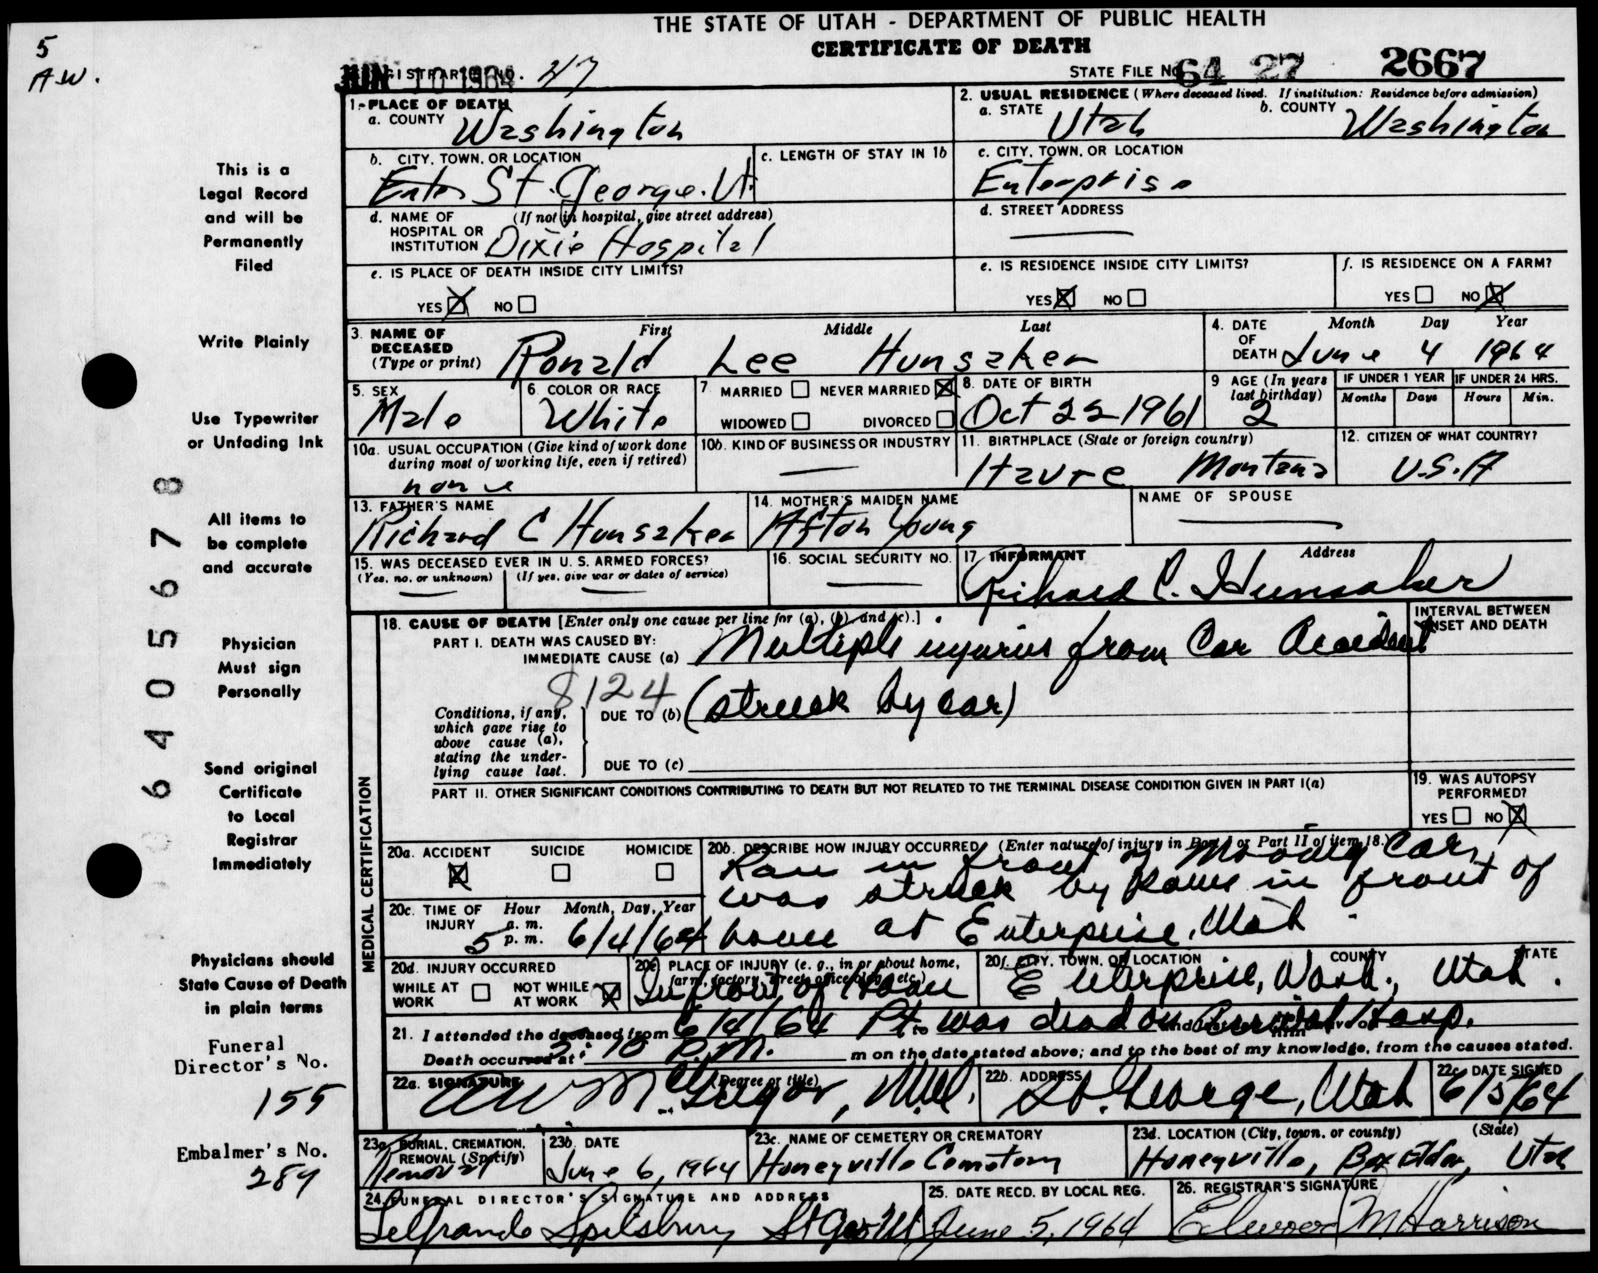 THE STATE OF UTAH - DEPARTMENT OF PUBLIC HEALTH
CERTIFICATE OF DEATH
5
A.W.
JUN 10 1964
REGISTRAR'S NO. 27
STATE FILE NO. 64 27 2667
1. PLACE OF DEATH
a. COUNTY Washington
2. USUAL RESIDENCE (Where deceased lived. If institution: Residence before admission)
a. STATE Utah b. COUNTY Washington
b. CITY, TOWN, OR LOCATION St. George. Ut
c. LENGTH OF STAY IN 1b
c. CITY, TOWN, OR LOCATION Enterprise
d. NAME OF HOSPITAL OR INSTITUTION (If not in hospital, give street address) Dixie Hospital
d. STREET ADDRESS
e. IS PLACE OF DEATH INSIDE CITY LIMITS?
YES X NO
e. IS RESIDENCE INSIDE CITY LIMITS?
YES X NO
f. IS RESIDENCE ON A FARM?
YES NO X
3. NAME OF DECEASED (Type or print)
First Middle Last
Ronald Lee Hunsaker
4. DATE OF DEATH Month Day Year
June 4 1964
5. SEX Male
6. COLOR OR RACE White
7 MARRIED NEVER MARRIED X
WIDOWED DIVORCED
8. DATE OF BIRTH Oct 22 1961
9 AGE (In years last birthday) 2
IF UNDER 1 YEAR Months Days
IF UNDER 24 HRS. Hours Min.
10a. USUAL OCCUPATION (Give kind of work done during most of working life, even if retired) none
10b. KIND OF BUSINESS OR INDUSTRY
11. BIRTHPLACE (State or foreign country) Havre Montana
12. CITIZEN OF WHAT COUNTRY? U.S.A
13. FATHER'S NAME Richard C Hunsaker
14. MOTHER'S MAIDEN NAME Afton Young
NAME OF SPOUSE
15. WAS DECEASED EVER IN U.S. ARMED FORCES?
(Yes, no, or unknown) (If yes, give war or dates of service)
16. SOCIAL SECURITY NO.
17 INFORMANT Address
Richard C. Hunsaker
MEDICAL CERTIFICATION
18. CAUSE OF DEATH [Enter only one cause per line for (a), (b), and (c).]
INTERVAL BETWEEN ONSET AND DEATH
PART I. DEATH WAS CAUSED BY:
IMMEDIATE CAUSE (a) Multiple injuries from Car Accident
8124
Conditions, if any, which gave rise to above cause (a), stating the underlying cause last.
DUE TO (b) (struck by car)
DUE TO (c)
PART II. OTHER SIGNIFICANT CONDITIONS CONTRIBUTING TO DEATH BUT NOT RELATED TO THE TERMINAL DISEASE CONDITION GIVEN IN PART I(a)
19. WAS AUTOPSY PERFORMED?
YES NO X
20a. ACCIDENT X SUICIDE HOMICIDE
20b. DESCRIBE HOW INJURY OCCURRED (Enter nature of injury in Part I or Part II of item 18.)
Ran in front of Moving Car,
was struck by same in front of
house at Enterprise, Utah.
20c. TIME OF INJURY Hour a.m. p.m. Month, Day, Year
5 6/4/64
20d. INJURY OCCURRED
WHILE AT WORK NOT WHILE AT WORK X
20e. PLACE OF INJURY (e. g., in or about home, farm, factory, street, office bldg., etc.)
In front of Home
20f. CITY, TOWN, OR LOCATION COUNTY STATE
Enterprise, Wash., Utah.
21. I attended the deceased from 6/4/64 Pt. was dead on Arrival Hosp.
Death occurred at 5:10 P.M. m on the date stated above; and to the best of my knowledge, from the causes stated.
22a. SIGNATURE (Degree or title) AW McGregor, M.D.
22b. ADDRESS St. George, Utah
22c. DATE SIGNED 6/5/64
23a. BURIAL, CREMATION, REMOVAL (Specify) Removal
23b. DATE June 6, 1964
23c. NAME OF CEMETERY OR CREMATORY Honeyville Cemetery
23d. LOCATION (City, town, or county) (State) Honeyville, Box Elder, Utah
24. FUNERAL DIRECTOR'S SIGNATURE AND ADDRESS
Spilsbury St Geo Ut
25. DATE RECD. BY LOCAL REG. June 5, 1964
26. REGISTRAR'S SIGNATURE M Harrison
This is a
Legal Record
and will be
Permanently
Filed
Write Plainly
Use Typewriter
or Unfading Ink
All items to
be complete
and accurate
Physician
Must sign
Personally
Send original
Certificate
to Local
Registrar
Immediately
Physicians should
State Cause of Death
in plain terms
Funeral
Director's No.
155
Embalmer's No.
289
6405678